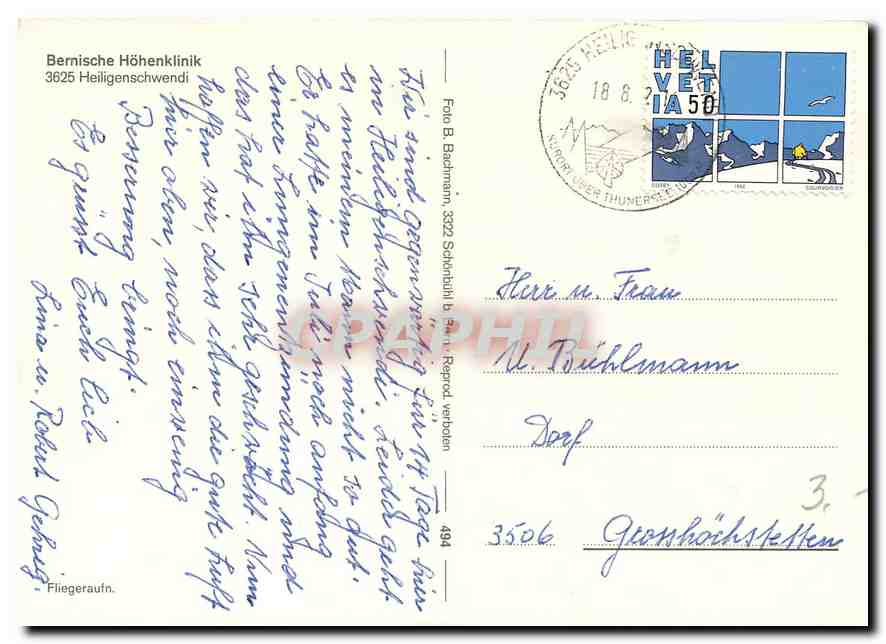 Bernische Höhenklinik
3625 Heiligenschwendi
Wir sind gegenwärtig für 14 Tage hier
in Heiligenschwendi. Leider geht
es meinem Mann nicht so gut.
Er hatte im Juli noch anfang
einer Lungenentzündung und
das hat ihn sehr geschwächt. Nun
hoffen wir, dass ihm die gute Luft
hier oben, noch ein wenig
Besserung bringt.
Es grüsst Euch lieb
Lina u. Robert Gehrig.
Fliegeraufn.
Foto B. Bachmann, 3322 Schönbühl b. Bern · Reprod. verboten
494
3625 HEILIGENSCHWENDI
18. 8.
KURORT ÜBER THUNERSEE
HEL
VET
IA 50
1992
COURVOISIER
Herr u. Frau
U. Bühlmann
Dorf
3506 Grosshöchstetten
3.-
CPAPHIL